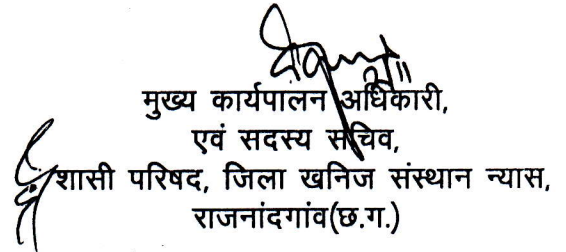 मुख्य कार्यपालन अधिकारी,
एवं सदस्य सचिव,
शासी परिषद, जिला खनिज संस्थान न्यास,
राजनांदगांव(छ.ग.)